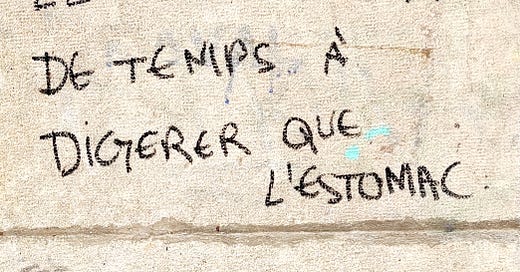 DE TEMPS À
DIGERER QUE
L'ESTOMAC.